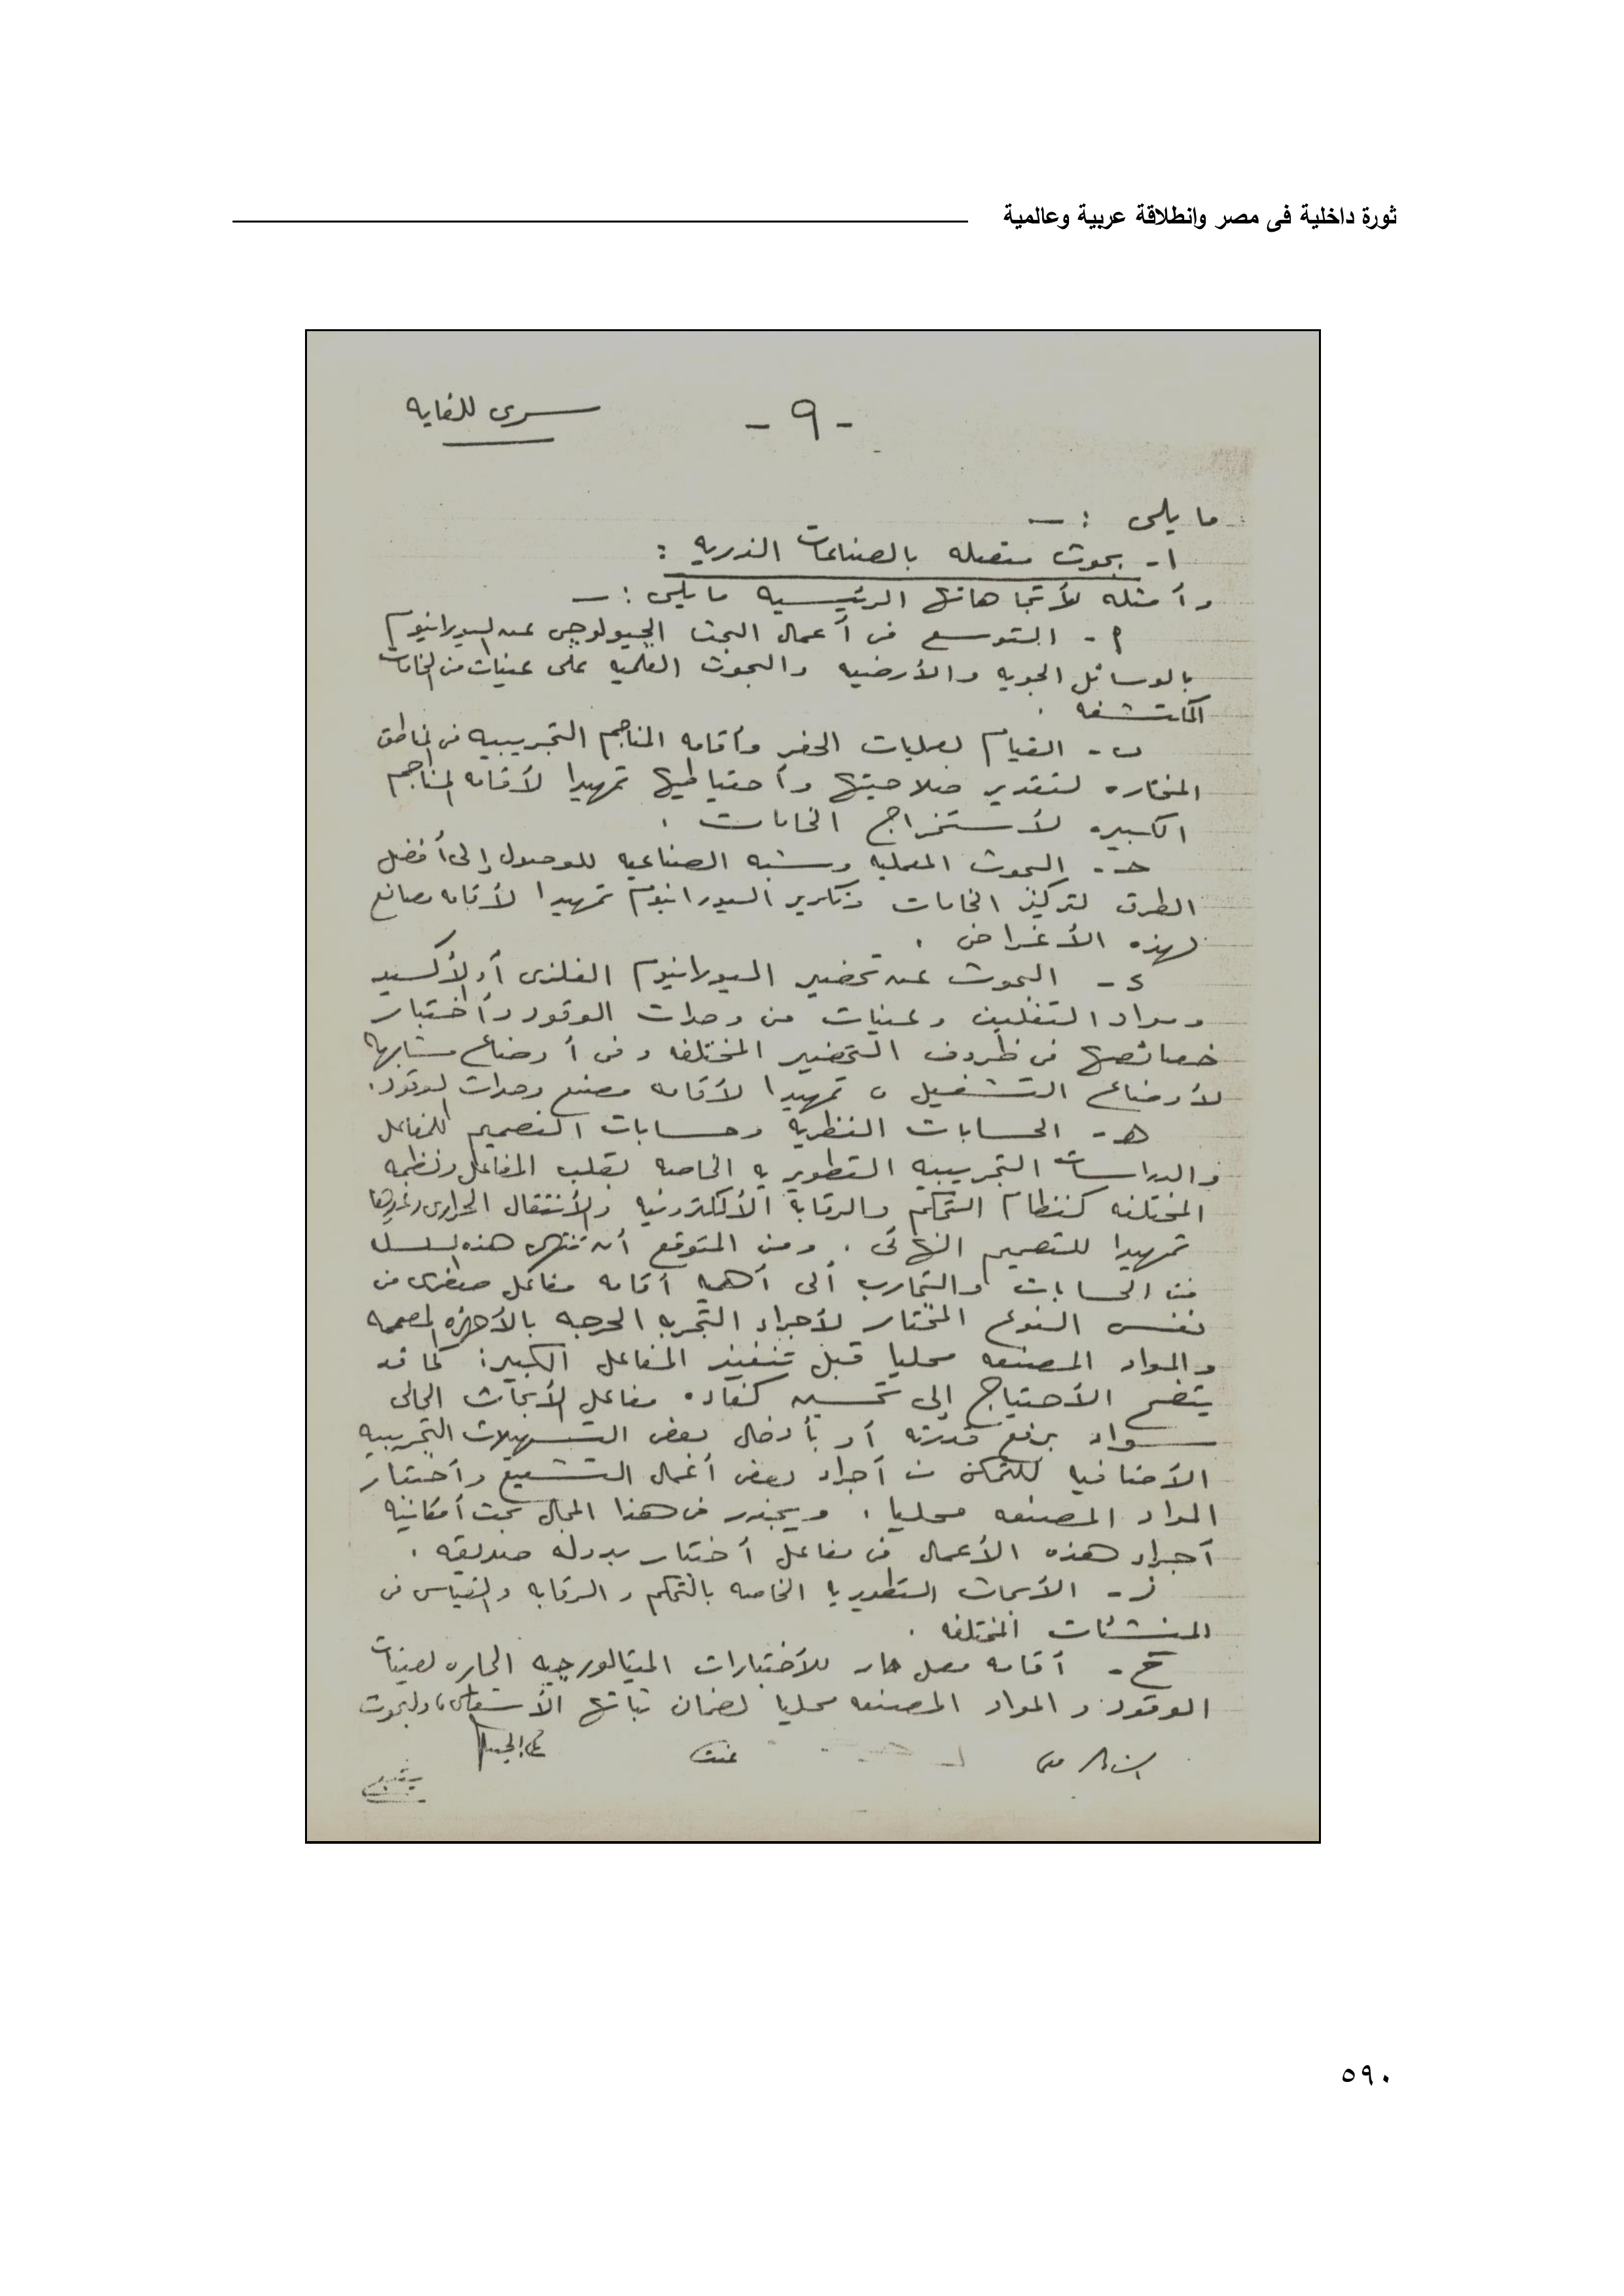 ثورة داخلية فى مصر وانطلاقة عربية وعالمية
سرى للغايه
- ٩ -
ما يلى : —
١- بحوث متصله بالصناعات الذريه :
وأمثله لأتجاهاتها الرئيسيه مايلى : —
أ - التوسع فى أعمال البحث الجيولوجى عن اليورانيوم
بالوسائل الجويه والأرضيه والبحوث العلميه على عينات من الخامات
المكتشفه .
ب - القيام بعمليات الحفر وأقامه المناجم التجريبيه فى المناطق
المختاره لتقدير صلاحيتها وأحتياطيها تمهيدا لأقامه المناجم
الكبيره لأستخراج الخامات .
حـ - البحوث المعمليه وشبه الصناعيه للوصول إلى أفضل
الطرق لتركيز الخامات وتكرير اليورانيوم تمهيدا لأقامه مصانع
لهذه الأغراض .
د - البحوث عن تحضير اليورانيوم الفلزى أو الأكسيد
ومواد التغليف وعينات من وحدات الوقود وأختبار
خصائصها فى ظروف التحضير المختلفه وفى أوضاع مشابهه
لأوضاع التشغيل ، تمهيدا لأقامه مصنع وحدات الوقود .
هـ - الحسابات النظرية وحسابات التصميم للمفاعل
والدراسات التجريبيه التطويريه الخاصه بقلب المفاعل ونظمه
المختلفه كنظام التحكم والرقابة الألكترونيه والأنتقال الحرارى وغيرها
تمهيدا للتصميم النهائى . ومن المتوقع أن تنتهى هذه السلسله
من الحسابات والتجارب ألى أهميه أقامه مفاعل صفرى من
نفس النوع المختار لأجراء التجربه الحرجه بالأجهزه المصممه
والمواد المصنعه محليا قبل تنفيذ المفاعل الكبير . كما قد
يتضح الأحتياج إلى تحسين كفاءه مفاعل الأبحاث الحالى
سواء برفع قدرته أو بأدخال بعض التسهيلات التجريبيه
الأضافيه للتمكن من أجراء بعض أعمال التشعيع وأختبار
المواد المصنعه محليا . ويجدر فى هذا المجال بحث أمكانيه
أجراء هذه الأعمال فى مفاعل أختبار بدوله صديقه .
ز - الأبحاث التطويريه الخاصه بالتحكم والرقابه والقياس فى
المنشئات المختلفه .
ح - أقامه معمل حار للأختبارات الميتالورجيه الحاره لعينات
الوقود والمواد المصنعه محليا لضمان ثباتها الأشعاعى ، ولبحوث
٥٩٠